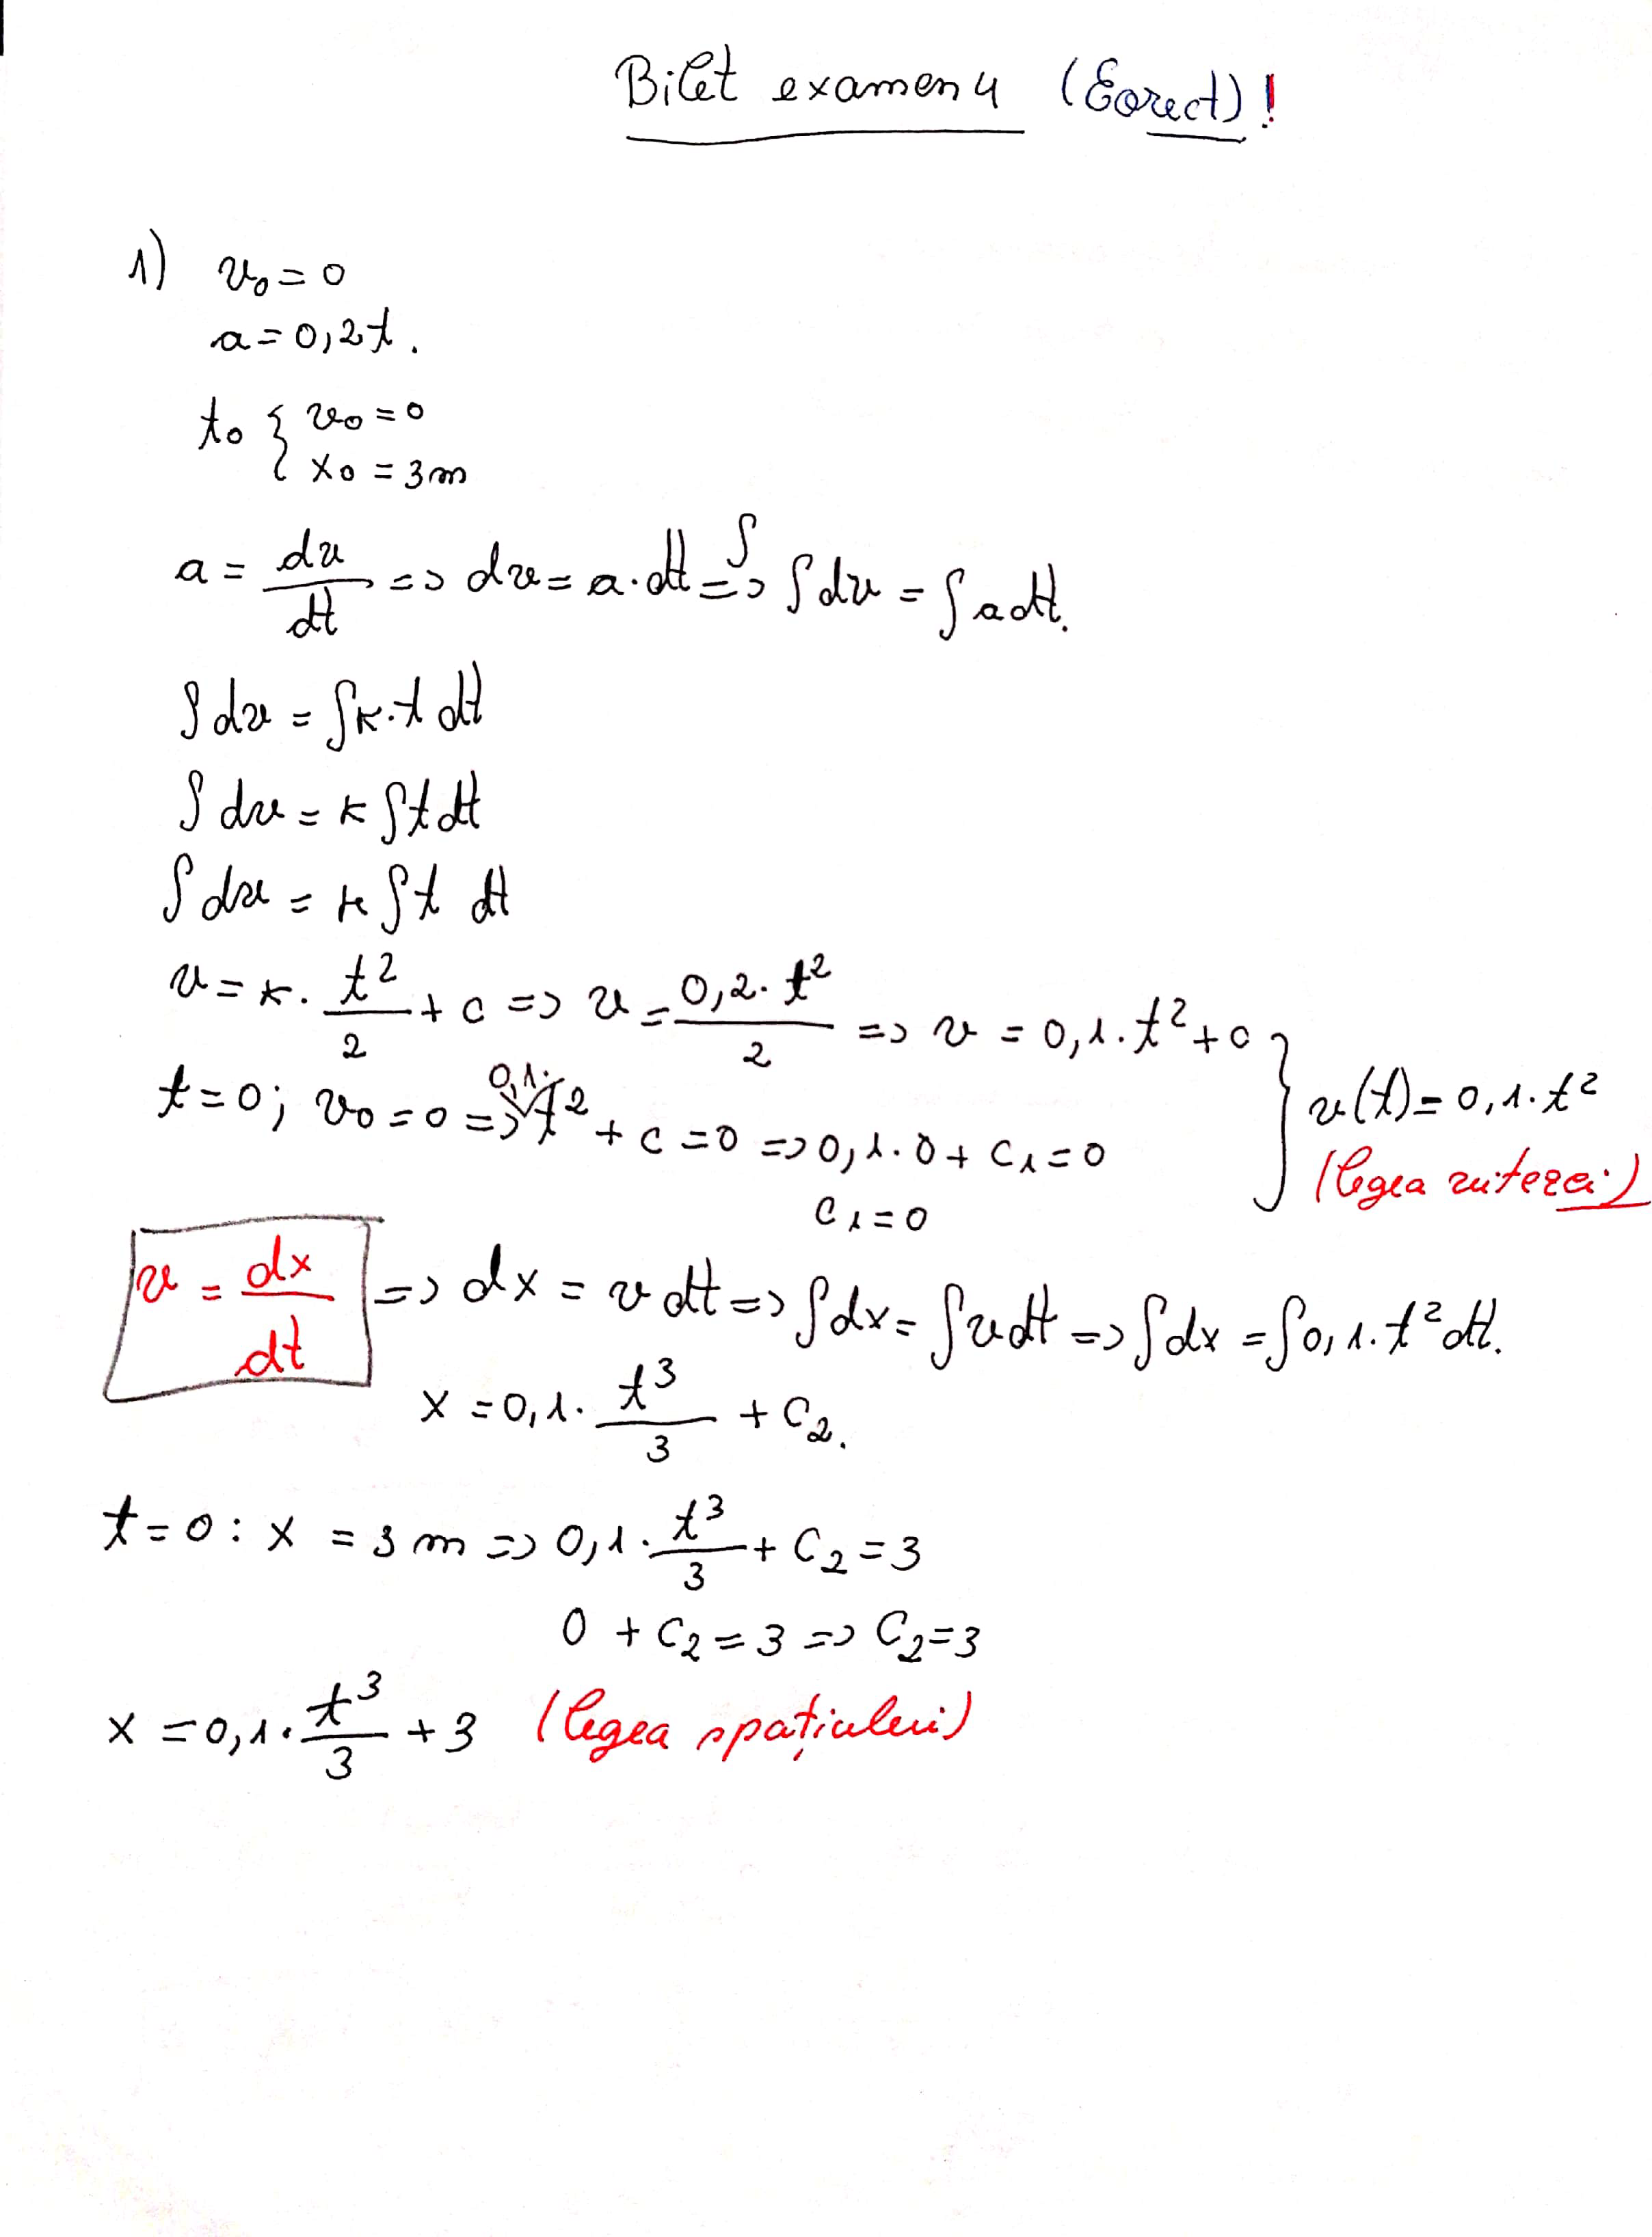 Bilet examen 4 (Corect)!
1) v₀ = 0
a = 0,2t.
t₀ { v₀ = 0
x₀ = 3m
a = dv/dt => dv = a·dt =>∫ ∫dv = ∫a dt.
∫dv = ∫k·t dt
∫dv = k ∫t dt
∫dv = k ∫t dt
v = k · t²/2 + c => v = 0,2·t²/2 => v = 0,1·t² + c
t = 0; v₀ = 0 => 0,1·t² + c = 0 => 0,1·0 + c₁ = 0
c₁ = 0
} v(t) = 0,1·t²
(legea vitezei)
v = dx/dt => dx = v dt => ∫dx = ∫v dt => ∫dx = ∫0,1·t² dt.
x = 0,1 · t³/3 + C₂.
t = 0 : x = 3 m => 0,1 · t³/3 + C₂ = 3
0 + C₂ = 3 => C₂ = 3
x = 0,1 · t³/3 + 3 (legea spațiului)